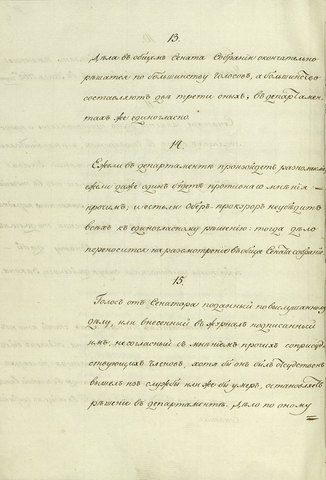 13.
Дѣла въ общемъ Сената собраніи окончательно
рѣшатся по большинству голосовъ, а большинство
составляютъ двѣ трети оныхъ; въ департамен-
тахъ же единогласно.
14.
Ежели въ департаментѣ произойдетъ разногласіе,
ежели даже одинъ будетъ противнаго мнѣнія
прочимъ, и естьли Оберъ-прокуроръ неубѣдитъ
всѣхъ къ единогласному рѣшенію: тогда дѣло
переносится на разсмотрѣніе въ общее Сената собраніе.
15.
Голосъ отъ Сенатора поданный по выслушанному
дѣлу, или внесенный въ журналъ подписанный
имъ, несогласный съ мнѣніемъ прочихъ соприсуд-
ствующихъ членовъ, хотя бы онъ былъ въ отсудствіи
вышелъ изъ службы или же бы умеръ, остановляетъ
рѣшеніе въ департаментѣ. Дѣло по оному